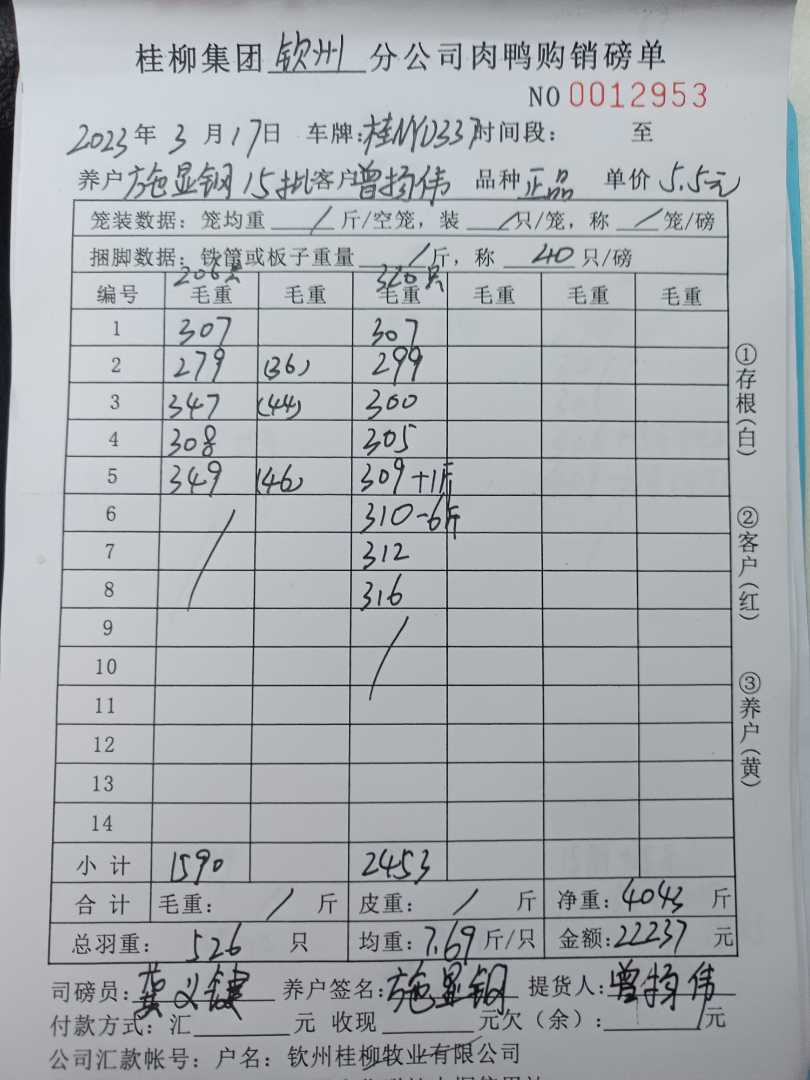 桂柳集团 钦州 分公司肉鸭购销磅单
NO 0012953
2023年 3月17日 车牌:桂NYD337时间段: 至
养户 施显钢 15批客户曾扬伟 品种 正品 单价 5.5元
笼装数据: 笼均重 / 斤/空笼, 装 / 只/笼, 称 / 笼/磅
捆脚数据: 铁筐或板子重量 / 斤, 称 40 只/磅
206只 320只
编号 毛重 毛重 毛重 毛重 毛重 毛重
1 307 307
2 279 (36) 299
3 347 (44) 300
4 308 305
5 349 (46) 309+1斤
6 310-6斤
7 312
8 316
9
10
11
12
13
14
小计 1590 2453
合计 毛重: / 斤 皮重: / 斤 净重:4043 斤
总羽重: 526 只 均重:7.69斤/只 金额:22237 元
司磅员: 养户签名:施显钢 提货人:曾扬伟
付款方式:汇 元 收现 元欠(余): / 元
公司汇款帐号: 户名: 钦州桂柳牧业有限公司
①存根(白)
②客户(红)
③养户(黄)